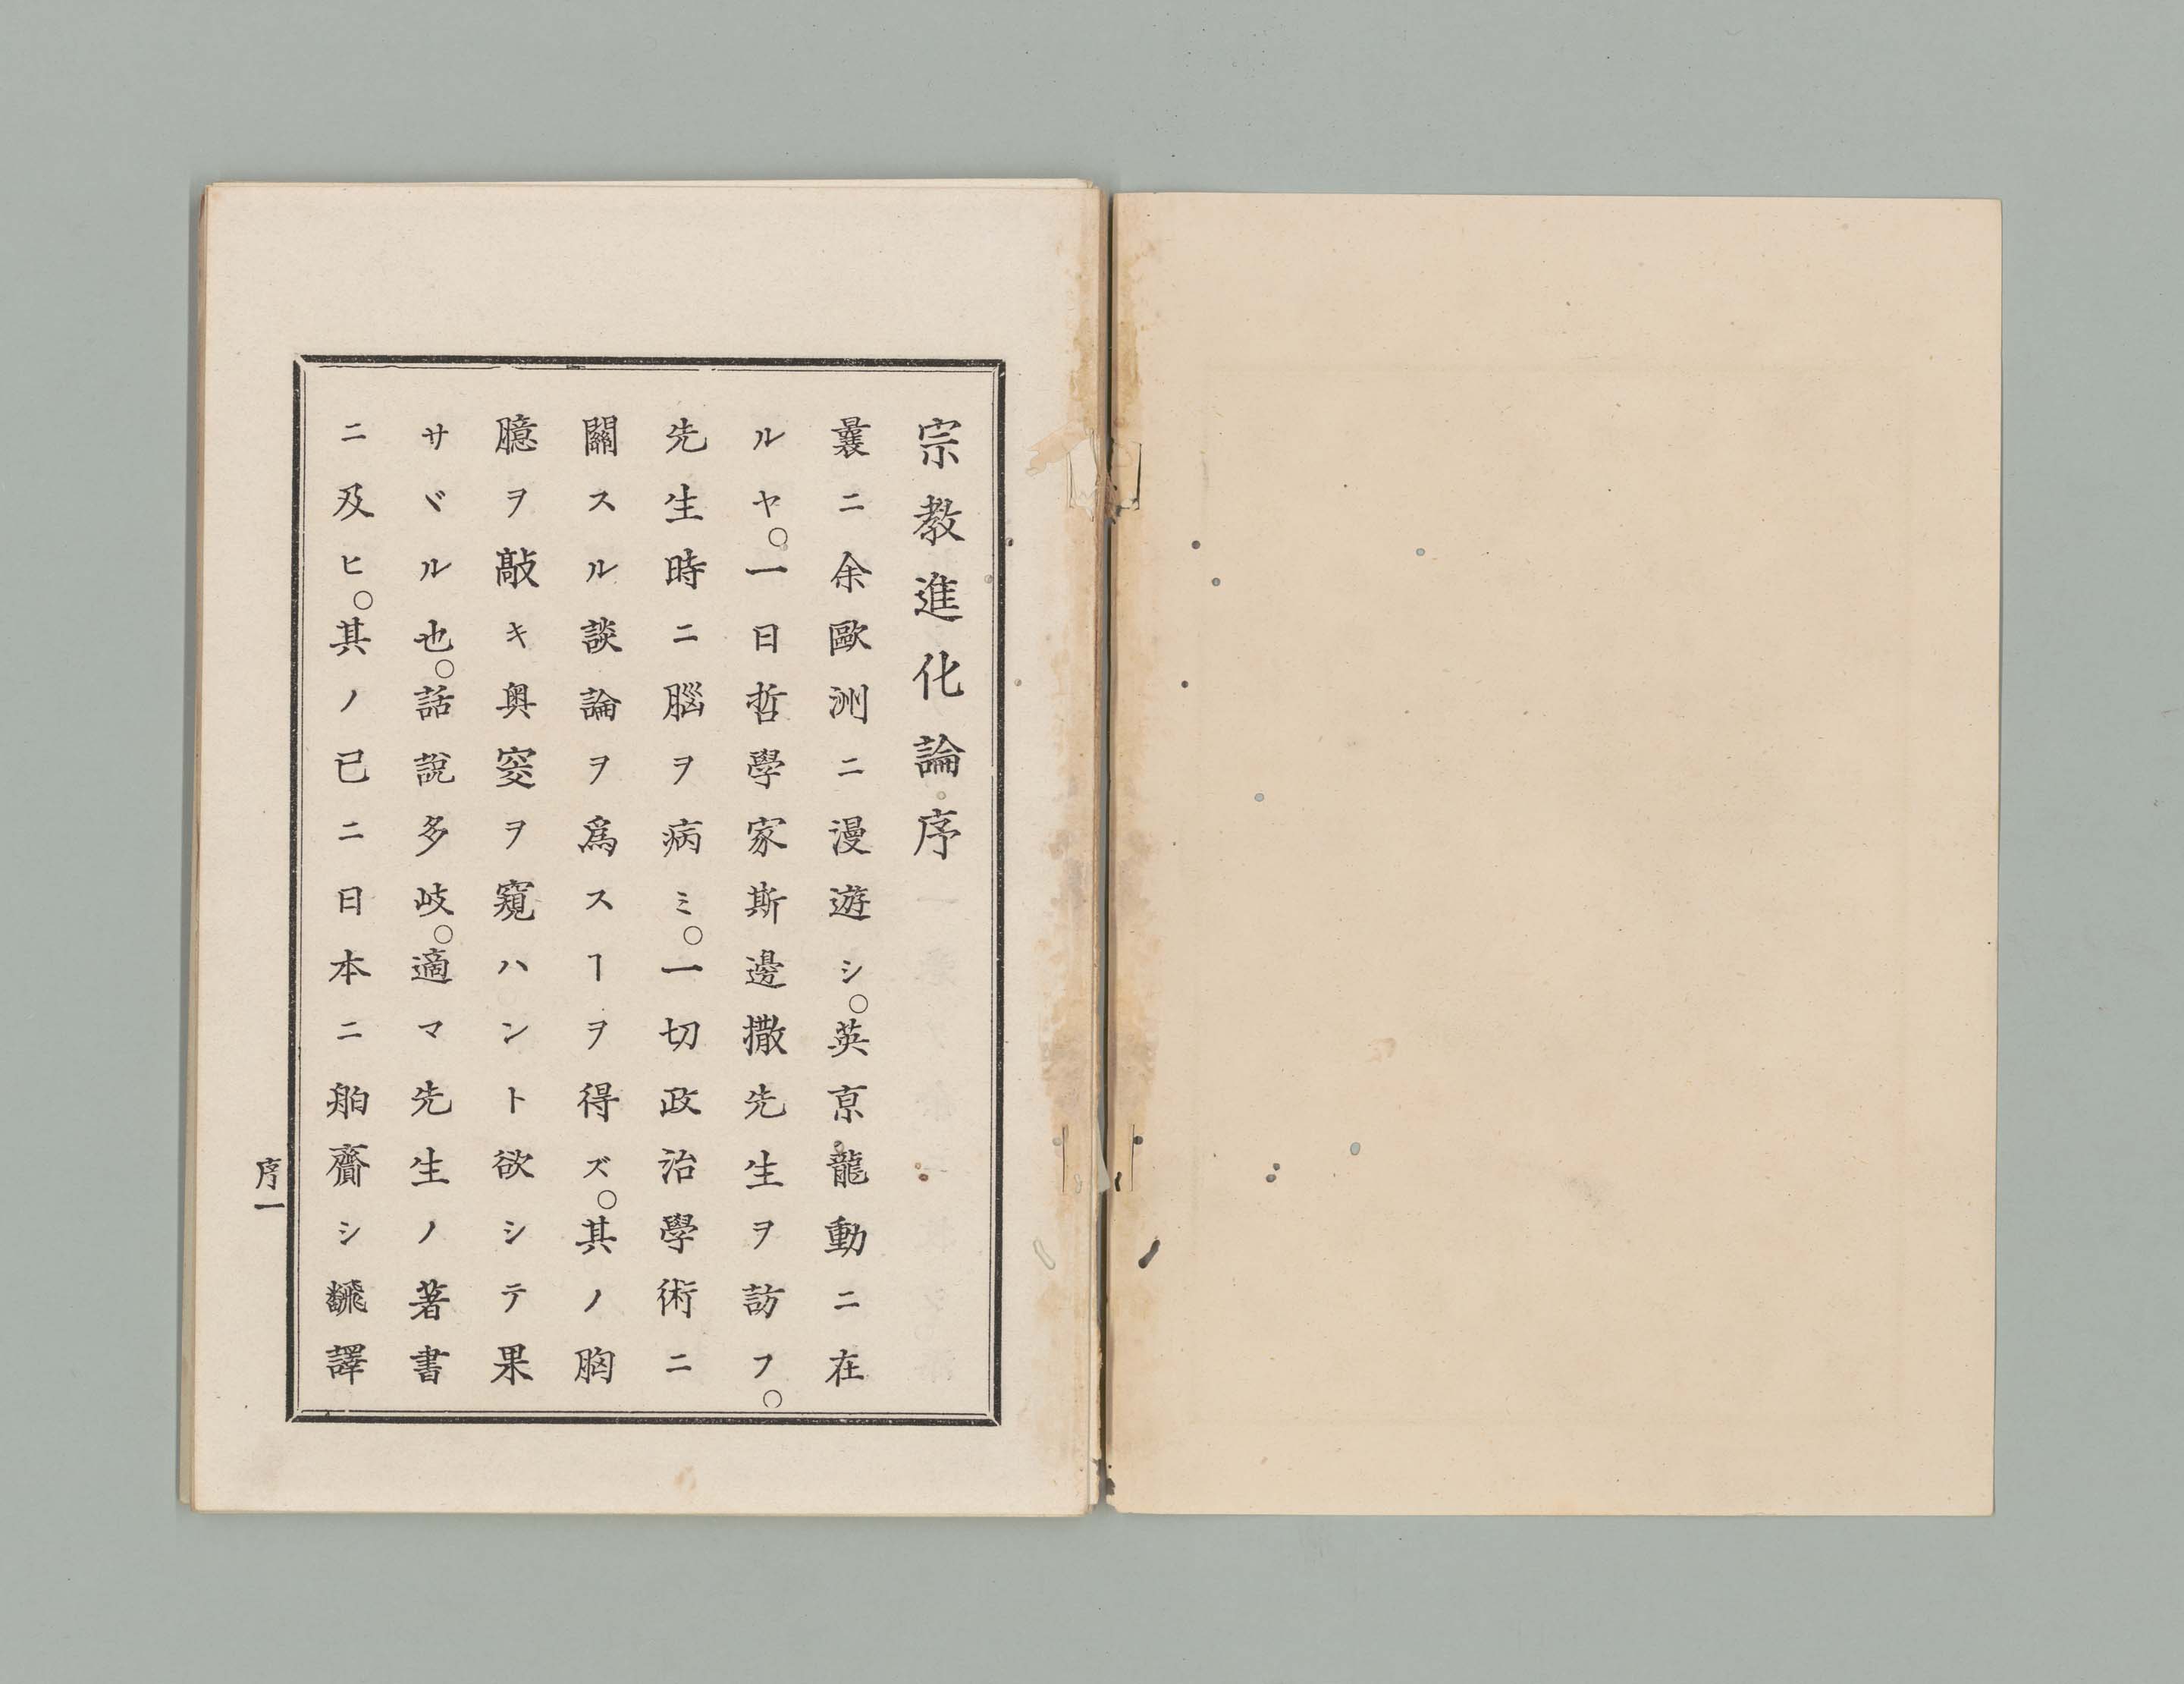 宗教進化論序
曩ニ余歐洲ニ漫遊シ。英京龍動ニ在
ルヤ。一日哲學家斯邊撒先生ヲ訪フ。
先生時ニ腦ヲ病ミ。一切政治學術ニ
關スル談論ヲ爲スヿヲ得ズ。其ノ胸
臆ヲ敲キ奥窔ヲ窺ハント欲シテ果
サヾル也。話說多岐。適マ先生ノ著書
ニ及ヒ。其ノ已ニ日本ニ舶齎シ飜譯
序一